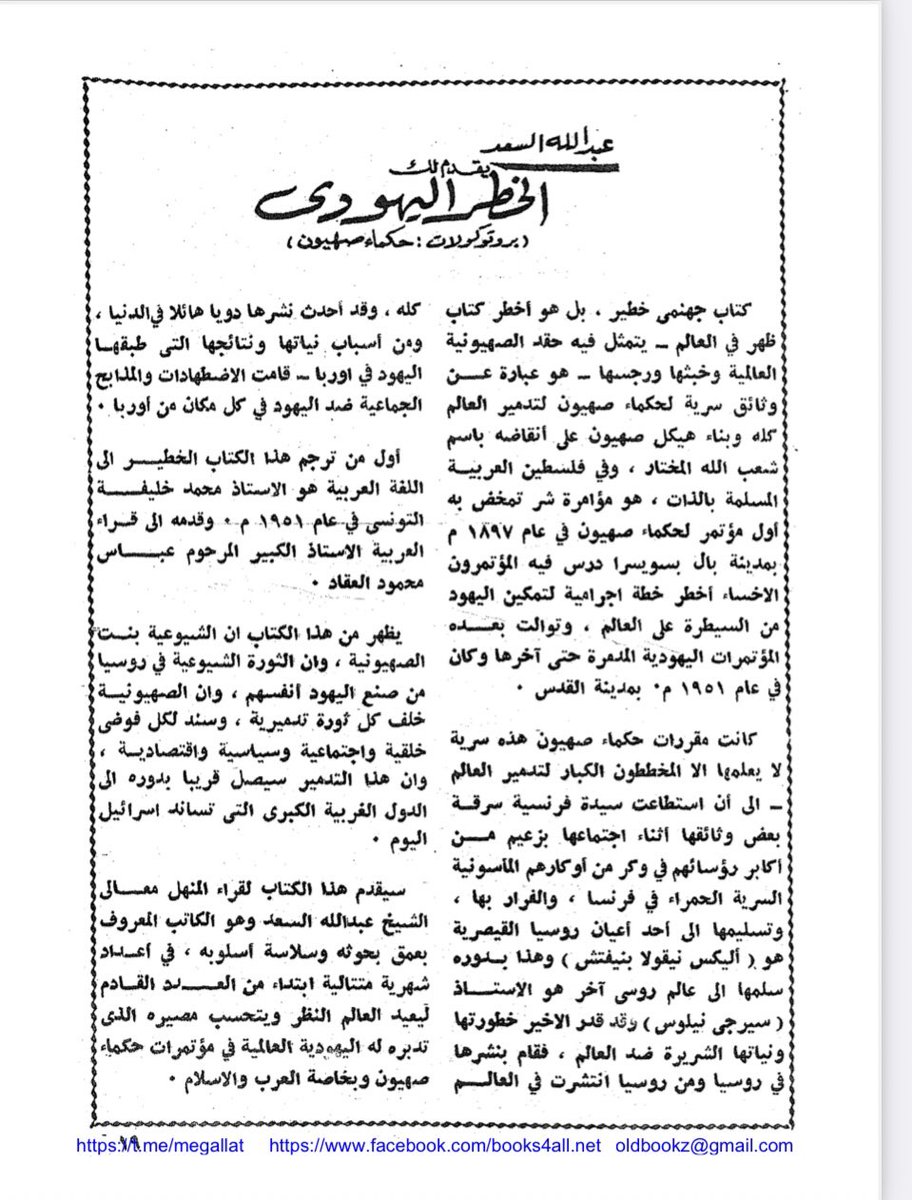 عبدالله السعد
يقدم لك
الخطر اليهودى
(بروتوكولات : حكماء صهيون)
كتاب جهنمى خطير . بل هو أخطر كتاب
ظهر في العالم – يتمثل فيه حقد الصهيونية
العالمية وخبثها ورجسها – هو عبارة عن
وثائق سرية لحكماء صهيون لتدمير العالم
كله وبناء هيكل صهيون على أنقاضه باسم
شعب الله المختار ، وفي فلسطين العربية
المسلمة بالذات ، هو مؤامرة شر تمخض به
أول مؤتمر لحكماء صهيون في عام ١٨٩٧ م
بمدينة بال بسويسرا درس فيه المؤتمرون
الاخساء أخطر خطة اجرامية لتمكين اليهود
من السيطرة على العالم ، وتوالت بعده
المؤتمرات اليهودية المدمرة حتى آخرها وكان
في عام ١٩٥١ م٠ بمدينة القدس ٠
كانت مقررات حكماء صهيون هذه سرية
لا يعلمها الا المخططون الكبار لتدمير العالم
– الى أن استطاعت سيدة فرنسية سرقة
بعض وثائقها أثناء اجتماعها بزعيم من
أكابر رؤسائهم في وكر من أوكارهم الماسونية
السرية الحمراء في فرنسا ، والفرار بها ،
وتسليمها الى أحد أعيان روسيا القيصرية
هو ( أليكس نيقولا بنيفتش ) وهذا بدوره
سلمها الى عالم روسى آخر هو الاستاذ
( سيرجى نيلوس ) وقد قدر الاخير خطورتها
ونياتها الشريرة ضد العالم ، فقام بنشرها
في روسيا ومن روسيا انتشرت في العالم
كله ، وقد أحدث نشرها دويا هائلا في الدنيا ،
ومن أسباب نياتها ونتائجها التى طبقها
اليهود في اوربا – قامت الاضطهادات والمذابح
الجماعية ضد اليهود في كل مكان من أوربا ٠
أول من ترجم هذا الكتاب الخطير الى
اللغة العربية هو الاستاذ محمد خليفة
التونسى في عام ١٩٥١ م ٠ وقدمه الى قراء
العربية الاستاذ الكبير المرحوم عباس
محمود العقاد ٠
يظهر من هذا الكتاب ان الشيوعية بنت
الصهيونية ، وان الثورة الشيوعية في روسيا
من صنع اليهود أنفسهم ، وان الصهيونية
خلف كل ثورة تدميرية ، وسند لكل فوضى
خلقية واجتماعية وسياسية واقتصادية ،
وان هذا التدمير سيصل قريبا بدوره الى
الدول الغربية الكبرى التى تساند اسرائيل
اليوم ٠
سيقدم هذا الكتاب لقراء المنهل معالى
الشيخ عبدالله السعد وهو الكاتب المعروف
بعمق بحوثه وسلاسة أسلوبه ، في أعداد
شهرية متتالية ابتداء من العدد القادم
ليعيد العالم النظر ويتحسب مصيره الذى
تدبره له اليهودية العالمية في مؤتمرات حكماء
صهيون وبخاصة العرب والاسلام ٠
https://t.me/megallat https://www.facebook.com/books4all.net oldbookz@gmail.com